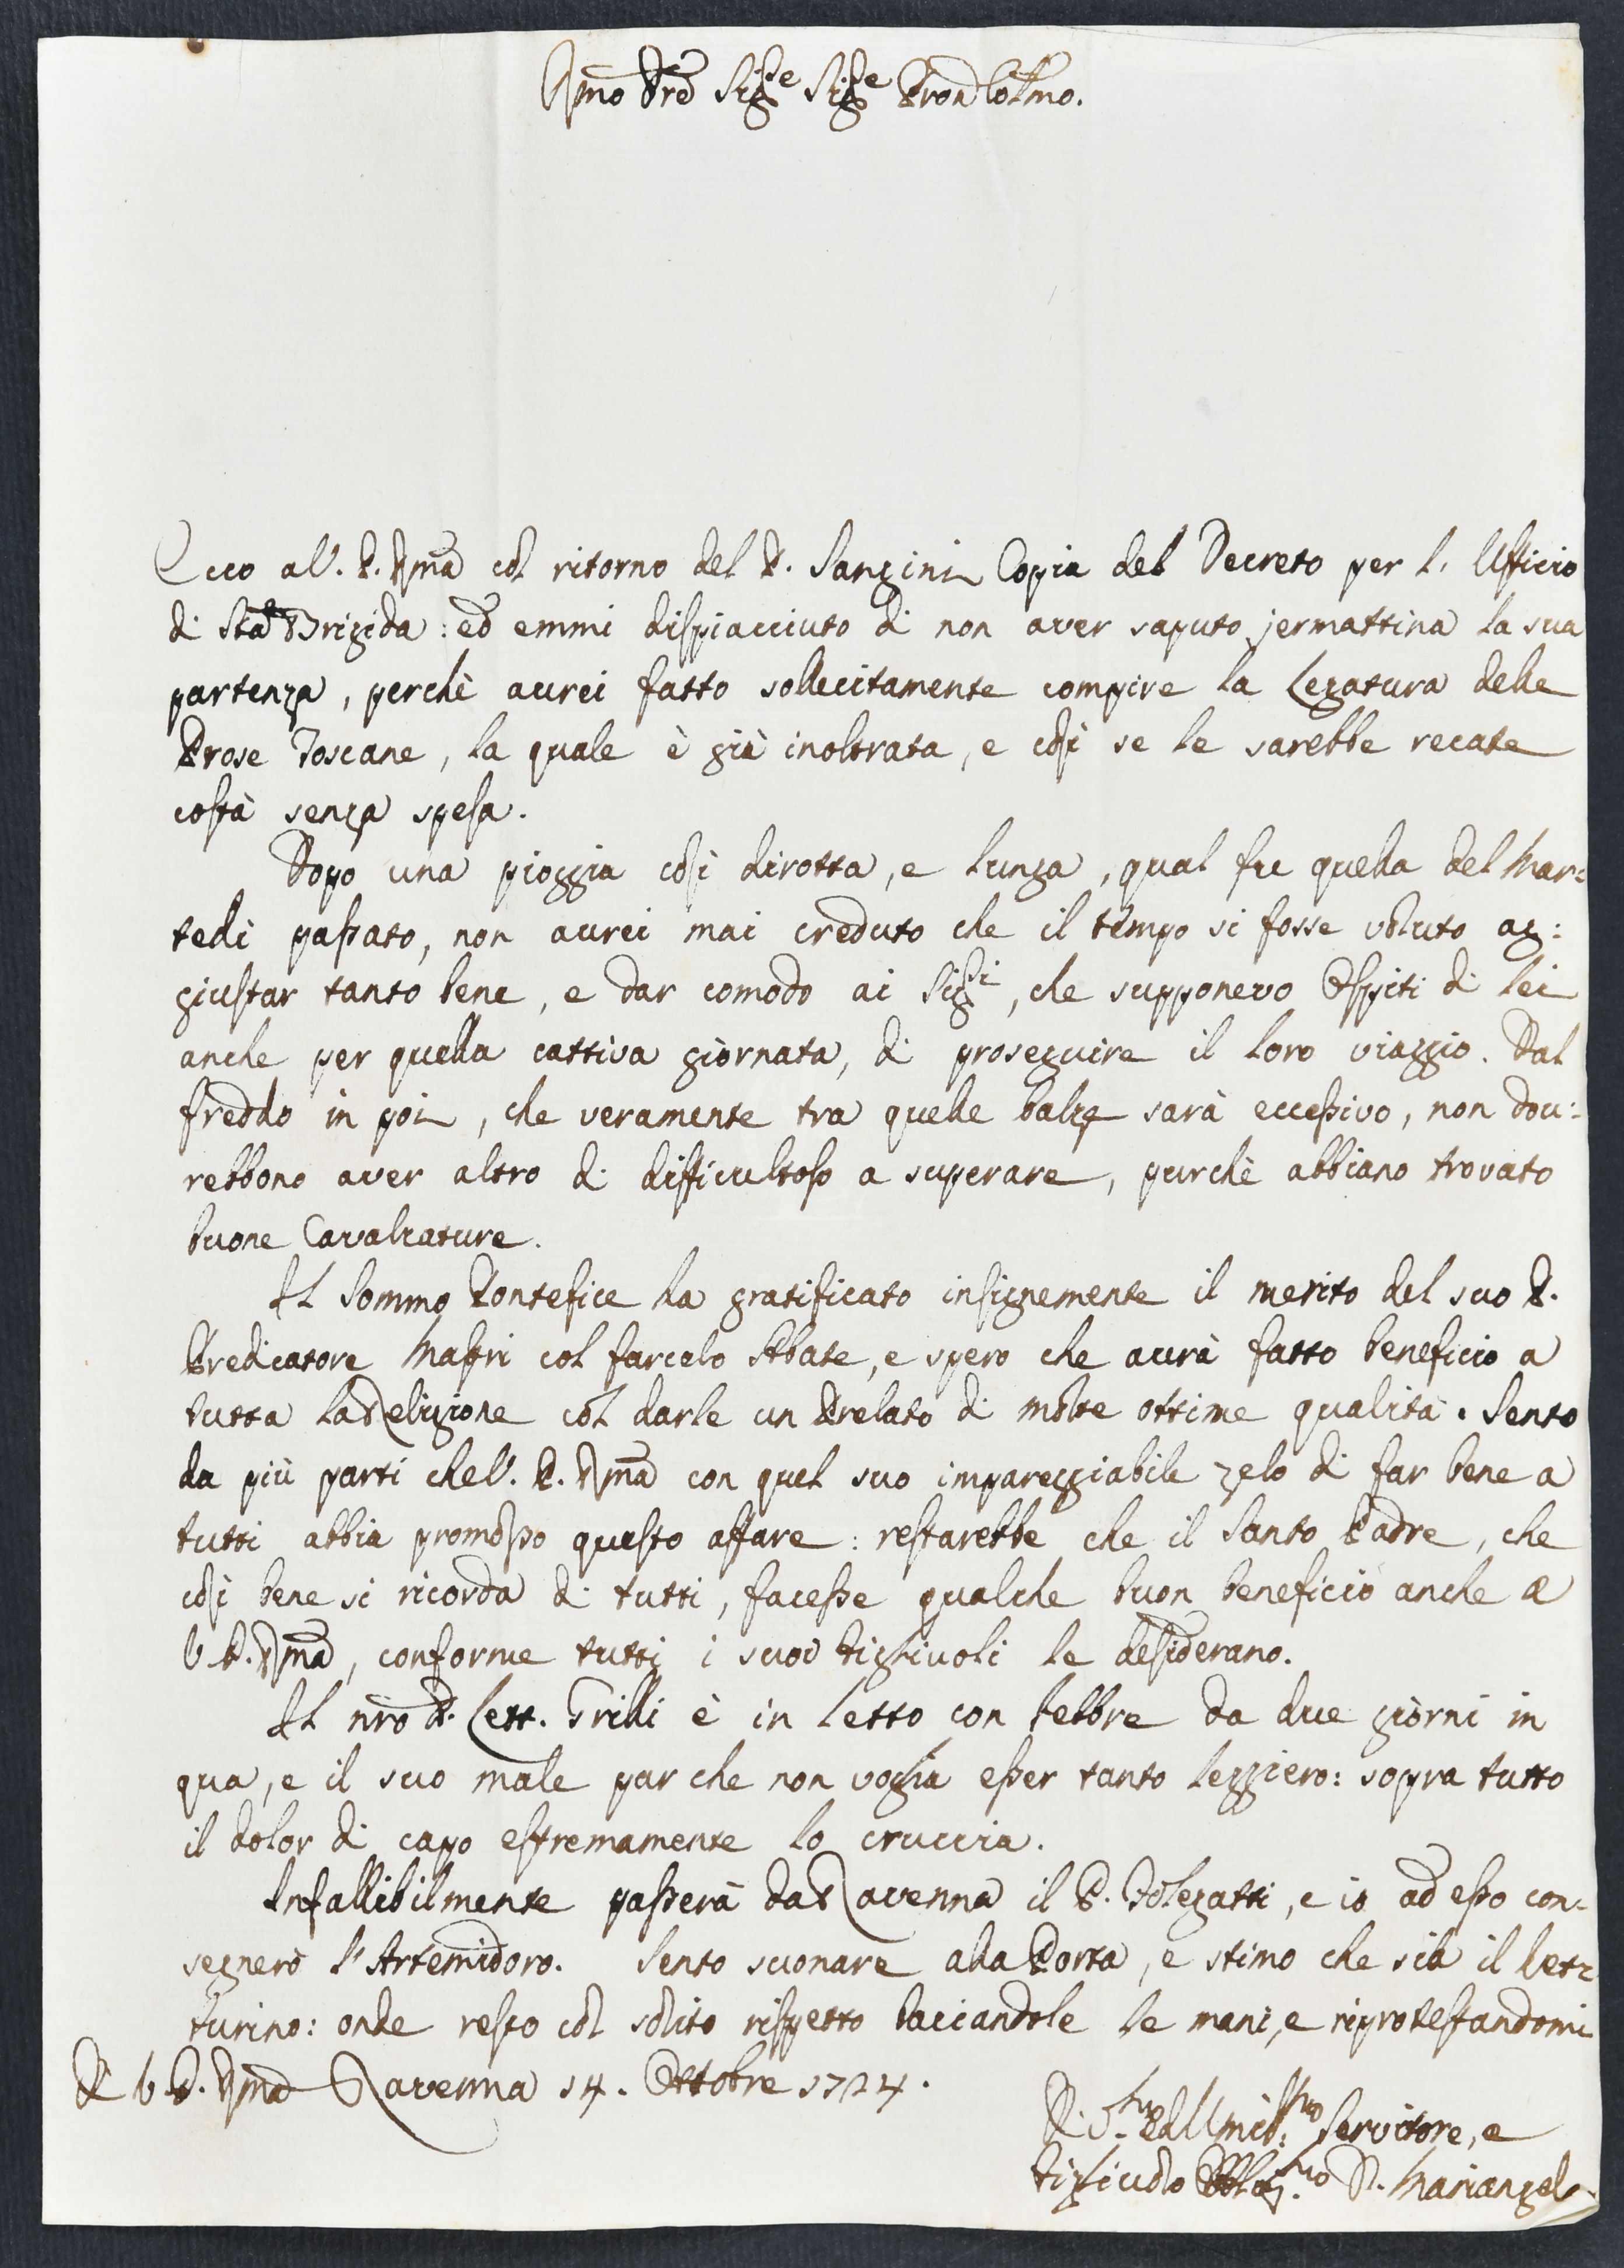 Rmo Pre Sigre Sigre Pron Colmo.
Ecco a V. P. Rma col ritorno del P. Sangini Copia del Decreto per l'Ufficio
di Sta Brigida: ed emmi dispiacciuto di non aver saputo jermattina la sua
partenza, perchè avrei fatto sollecitamente compire la Legatura delle
Prose Toscane, la quale è già inoltrata, e così se le sarebbe recate
costà senza spesa.
Dopo una pioggia così dirotta, e lunga, qual fu quella del Mar-
tedì passato, non avrei mai creduto che il tempo si fosse voluto ag-
giustar tanto bene, e dar comodo ai Sigri, che supponevo Ospiti di lei
anche per quella cattiva giornata, di proseguire il loro viaggio. Dal
freddo in poi, che veramente tra quelle balze sarà eccessivo, non dov-
rebbono aver altro di difficultoso a superare, purchè abbiano trovato
buone Cavalcature.
Il Sommo Pontefice ha gratificato insignemente il merito del suo P.
Predicatore Masri col farcelo Abate, e spero che avrà fatto beneficio a
tutta la Religione col darle un Prelato di molte ottime qualità. Sento
da più parti che V. P. Rma con quel suo impareggiabile zelo di far bene a
tutti abbia promosso questo affare: restarebbe che il Santo Padre, che
così bene si ricorda di tutti, facesse qualche buon beneficio anche a
V. P. Rma, conforme tutti i suoi figliuoli le desiderano.
Il nro P. Lett. Grilli è in letto con febbre da due giorni in
qua, e il suo male par che non voglia esser tanto leggiero: sopra tutto
il dolor di capo estremamente lo cruccia.
Infallibilmente passerà da Ravenna il P. Folegatti, e io ad esso con-
segnerò l'Artemidoro. Sento suonare alla Porta, e stimo che sia il Vet-
turino: onde resto col solito rispetto bacciandole le mani, e riprotestandomi
Di V. P. Rma Ravenna 14. Ottobre 1724.
Di.mo ed Umil.mo Servitore, e
figliuolo Obblig.mo D. Mariangelo